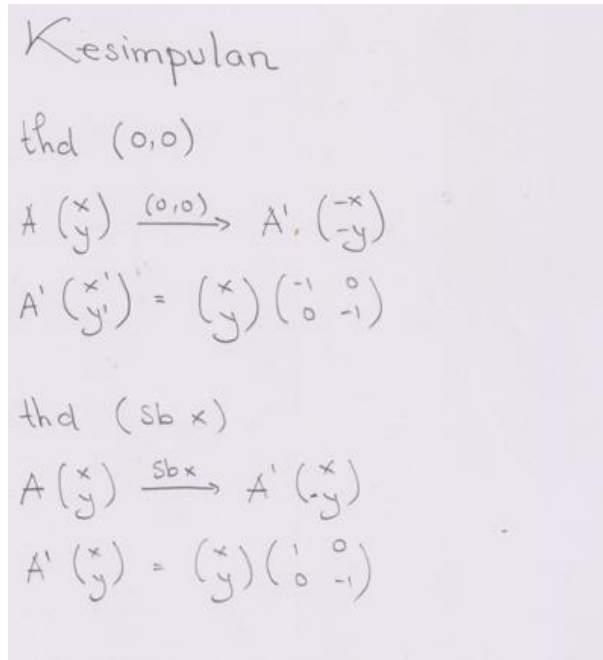 Kesimpulan
thd (0,0)
A (x y) (0,0)→ A'. (-x -y)
A' (x' y') = (x y) (-1 0 0 -1)
thd (sb x)
A (x y) sbx→ A' (x -y)
A' (x y) = (x y) (1 0 0 -1)